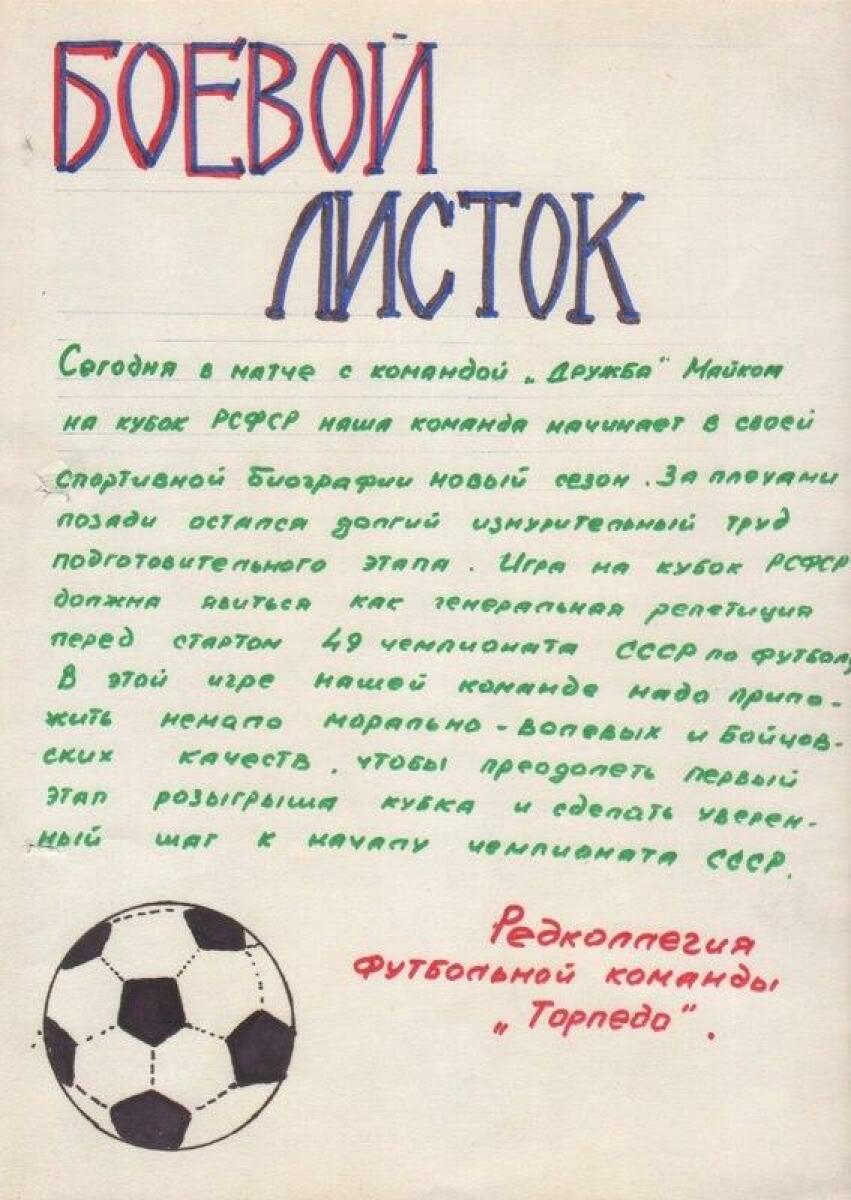 БОЕВОЙ
ЛИСТОК
Сегодня в матче с командой „Дружба" Майкоп
на кубок РСФСР наша команда начинает в своей
спортивной биографии новый сезон. За плечами
позади остался долгий изнурительный труд
подготовительного этапа. Игра на кубок РСФСР
должна явиться как генеральная репетиция
перед стартом 49 чемпионата СССР по футболу
В этой игре нашей команде надо прило-
жить немало морально-волевых и бойцов-
ских качеств, чтобы преодолеть первый
этап розыгрыша кубка и сделать уверен-
ный шаг к началу чемпионата СССР.
Редколлегия
футбольной команды
„Торпедо".